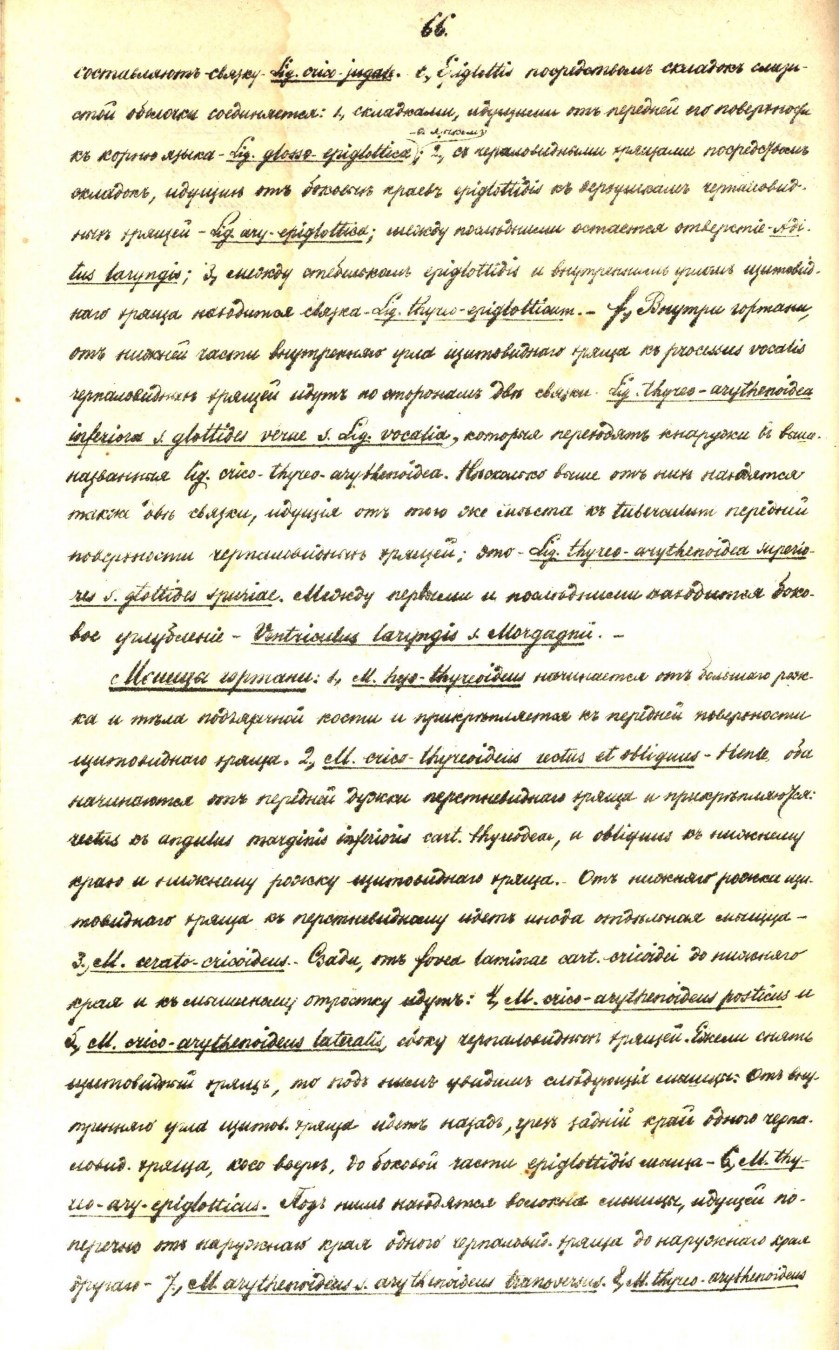 66.
составляютъ связку - Lig. crico-jugale. e, Epiglottis посредствомъ складокъ слизи-
стой оболочки соединяется: 1, складками, идущими отъ передней его поверхности
къ корню языка - Lig. glosso-epiglottica; 2, съ черпаловидными хрящами посредствомъ
складокъ, идущихъ отъ боковыхъ краевъ epiglottidis къ верхушкамъ черпаловид-
ныхъ хрящей - Lig. ary-epiglottica; между последними остается отверстіе - Adi-
tus laryngis; 3, между стебелькомъ epiglottidis и внутреннимъ угломъ щитовид-
наго хряща находится связка - Lig. thyreo-epiglotticum. - f, Внутри гортани,
отъ нижней части внутренняго угла щитовиднаго хряща къ processus vocalis
черпаловидныхъ хрящей идутъ по сторонамъ двѣ связки - Lig. thyreo-arythenoidea
inferiora s. glottides verae s. Lig. vocalia, которыя переходятъ кнаружи въ выше-
названныя lig. crico-thyreo-arythenoidea. Нѣсколько выше отъ нихъ находятся
также двѣ связки, идущія отъ того же мѣста къ tuberculum передней
поверхности черпаловидныхъ хрящей; это - Lig. thyreo-arythenoidea superio-
res s. glottides spuriae. Между первыми и послѣдними находится боко-
вое углубленіе - Ventriculus laryngis s. Morgagnii. -
Мышцы гортани: 1, M. hyo-thyreoideus начинается отъ большаго рож-
ка и тѣла подъязычной кости и прикрѣпляется къ передней поверхности
щитовиднаго хряща. 2, M. crico-thyreoideus rectus et obliquus - Henle, оба
начинаются отъ передней дужки перстневиднаго хряща и прикрѣпляются:
rectus къ angulus marginis inferioris cart. thyreoideae, и obliquus къ нижнему
краю и нижнему рожку щитовиднаго хряща. - Отъ нижняго рожка щи-
товиднаго хряща къ перстневидному идетъ иногда отдѣльная мышца -
3, M. cerato-cricoideus. - Сзади, отъ fovea laminae cart. cricoidei до нижняго
края и къ мышечному отростку идутъ: 4, M. crico-arythenoideus posticus и
5, M. crico-arythenoideus lateralis, сбоку черпаловидныхъ хрящей. Ежели снять
щитовидный хрящъ, то подъ нимъ увидимъ слѣдующія мышцы: Отъ вну-
тренняго угла щитов. хряща идетъ назадъ, чрезъ задній край одного черпа-
ловид. хряща, косо вверхъ, до боковой части epiglottidis мышца - 6, M. thy-
reo-ary-epiglotticus. Подъ нимъ находятся волокна мышцы, идущей по-
перечно отъ наружнаго края одного черпаловид. хряща до наружнаго края
другаго - 7, M. arythenoideus s. arythenoideus transversus. 8, M. thyreo-arythenoideus